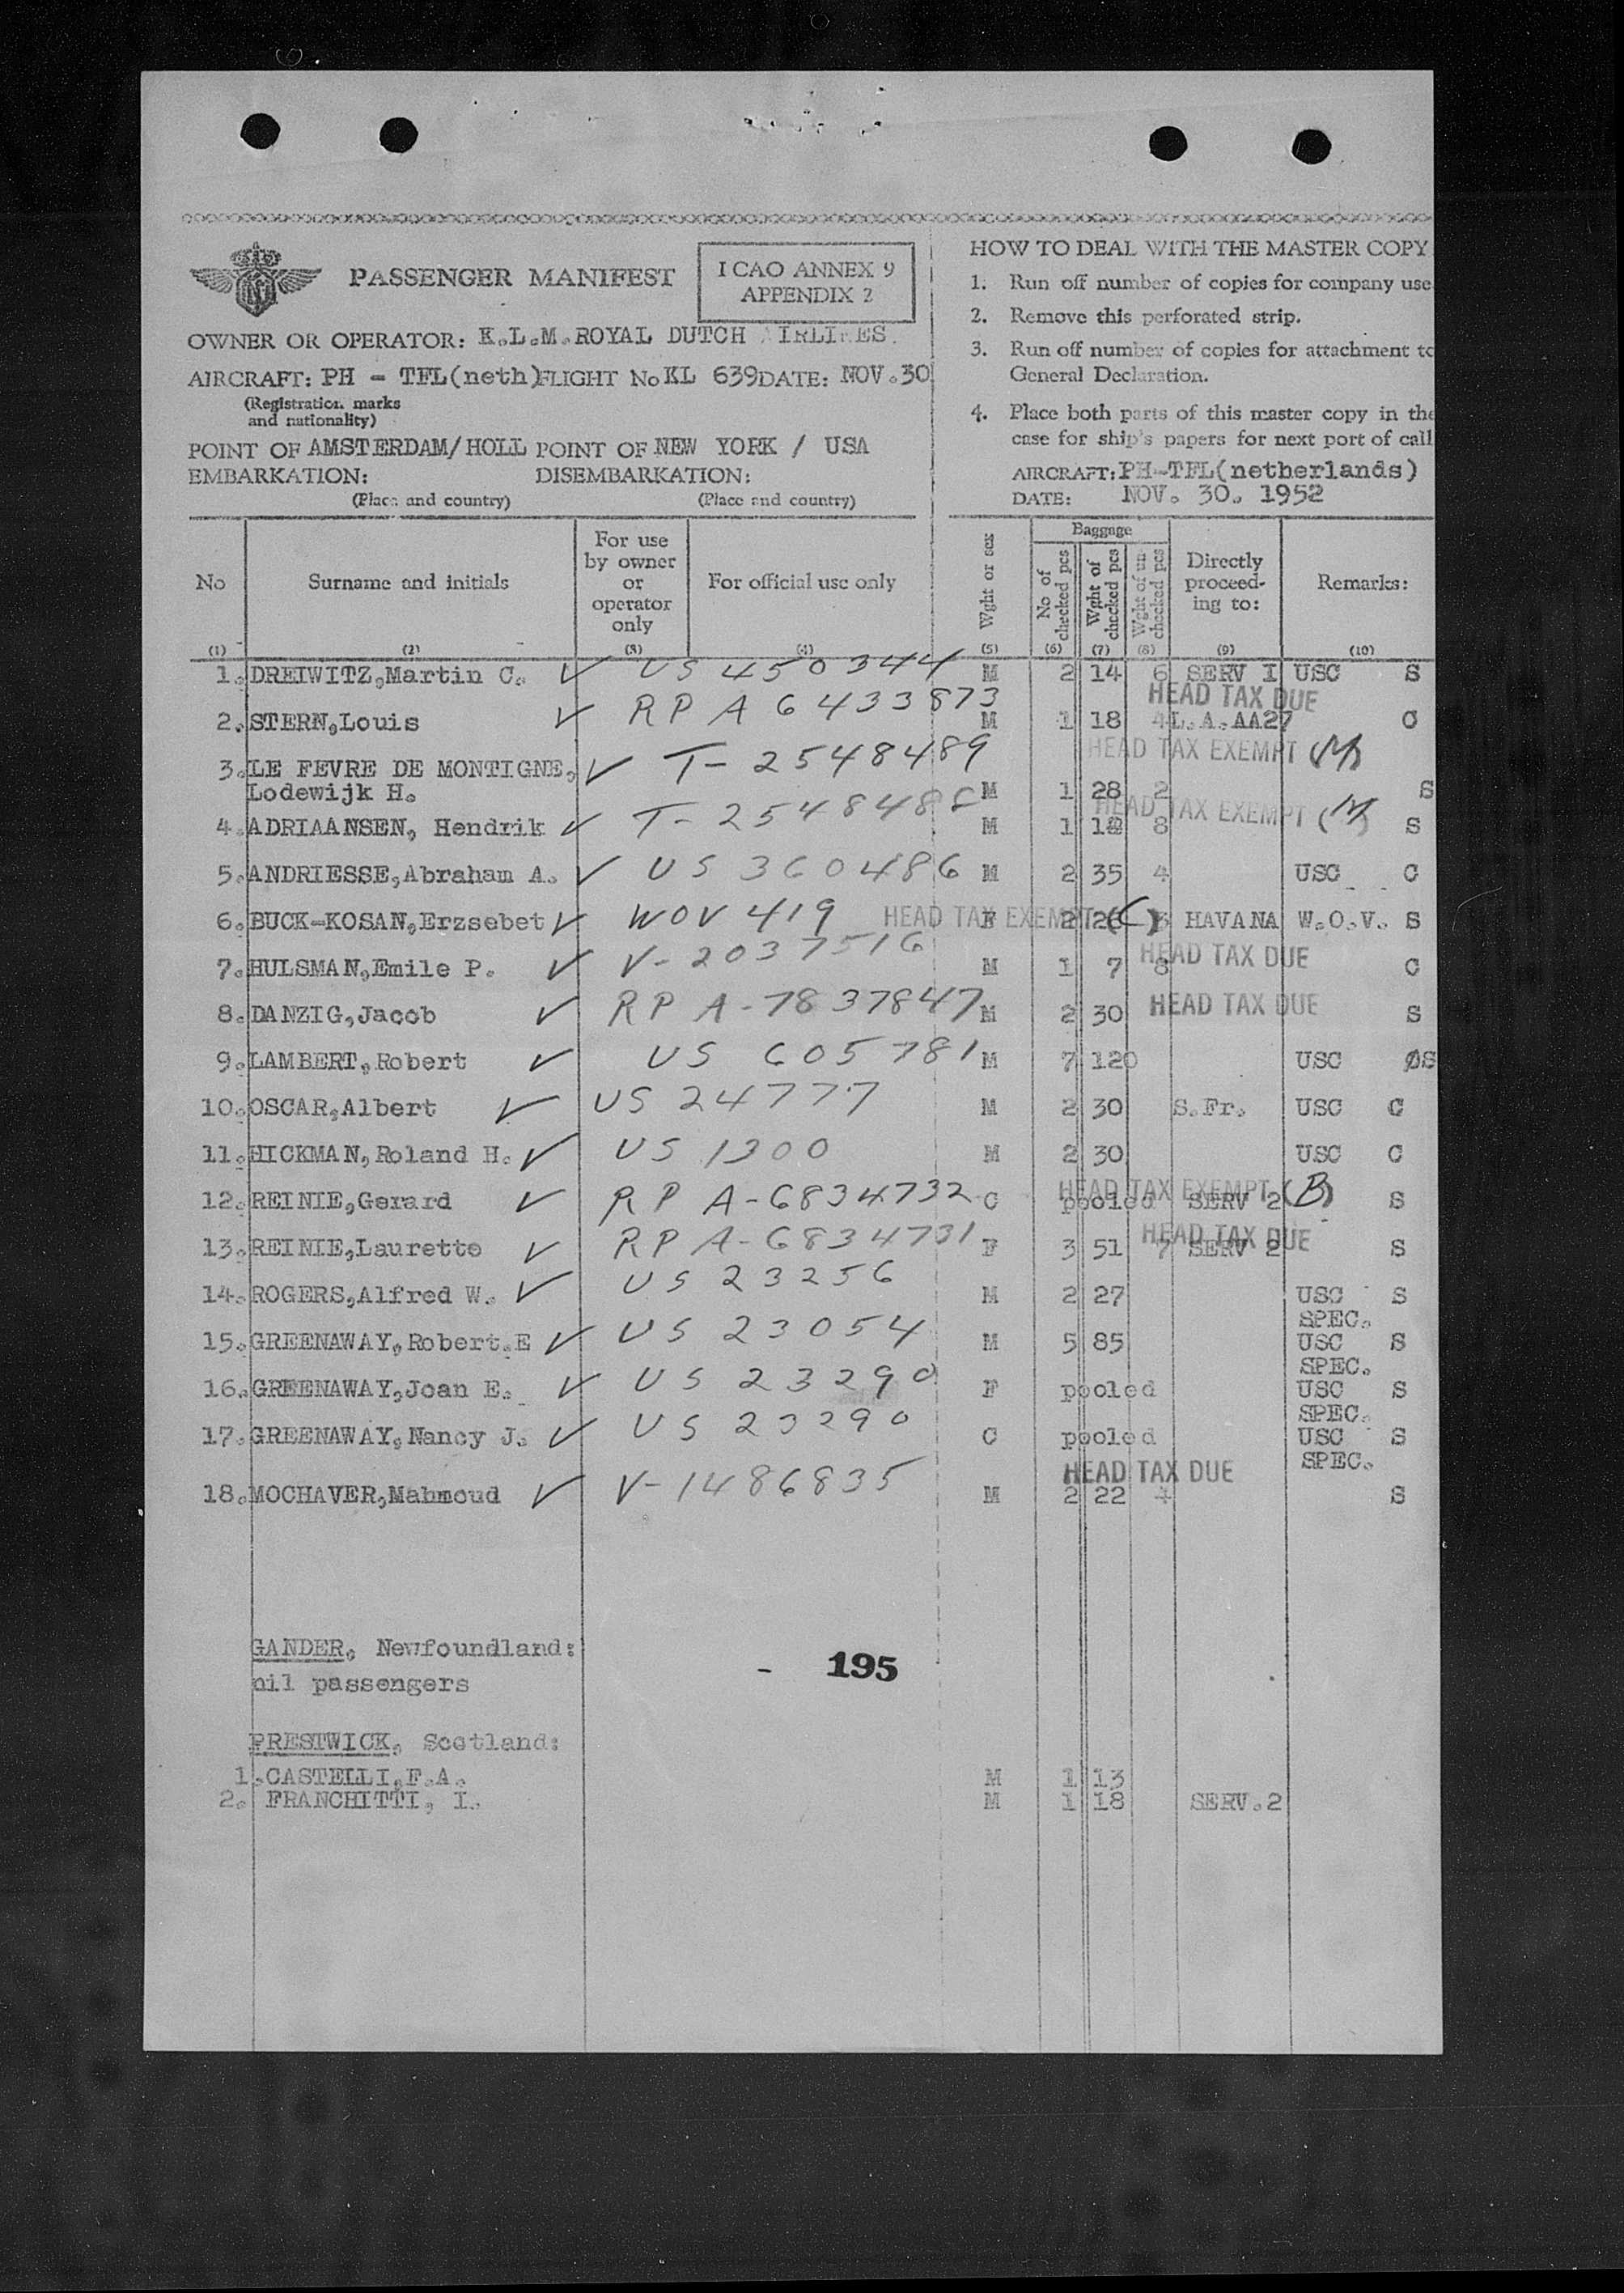 PASSENGER MANIFEST
ICAO ANNEX 9
APPENDIX 2
OWNER OR OPERATOR: K.L.M. ROYAL DUTCH AIRLINES.
AIRCRAFT: PH - TFL(neth) FLIGHT No KL 639 DATE: NOV.30
(Registration marks
and nationality)
POINT OF AMSTERDAM/HOLL POINT OF NEW YORK / USA
EMBARKATION: DISEMBARKATION:
(Place and country) (Place and country)
HOW TO DEAL WITH THE MASTER COPY
1. Run off number of copies for company use
2. Remove this perforated strip.
3. Run off number of copies for attachment to
General Declaration.
4. Place both parts of this master copy in the
case for ship's papers for next port of call
AIRCRAFT: PH-TFL(netherlands)
DATE: NOV. 30. 1952
No Surname and initials For use by owner or operator only For official use only Wght or sex Baggage No of checked pcs Wght of checked pcs Wght of un checked pcs Directly proceed-ing to: Remarks:
(1) (2) (3) (4) (5) (6) (7) (8) (9) (10)
1. DREIWITZ,Martin C. ✓ US 450344 M 2 14 6 SERV I USC S
HEAD TAX DUE
2. STERN,Louis ✓ RP A 6433873 M 1 18 4 L.A.AA27 C
HEAD TAX EXEMPT (M)
3. LE FEVRE DE MONTIGNE, ✓ T-2548489
Lodewijk H. M 1 28 2 S
HEAD TAX EXEMPT (M)
4. ADRIAANSEN, Hendrik ✓ T-254848 M 1 18 8 S
5. ANDRIESSE,Abraham A. ✓ US 360486 M 2 35 4 USC C
6. BUCK-KOSAN,Erzsebet ✓ WOV 419 HEAD TAX EXEMPT (C) F 2 26 3 HAVANA W.O.V. S
7. HULSMAN,Emile P. ✓ V-2037516 M 1 7 8 HEAD TAX DUE C
8. DANZIG,Jacob ✓ RP A-7837847 M 2 30 HEAD TAX DUE S
9. LAMBERT,Robert ✓ US 605781 M 7 120 USC ØS
10. OSCAR,Albert ✓ US 24777 M 2 30 S.Fr. USC C
11. HICKMAN,Roland H. ✓ US 1300 M 2 30 USC C
HEAD TAX EXEMPT (B)
12. REINIE,Gerard ✓ RP A-6834732 C pooled SERV 2 S
HEAD TAX DUE
13. REINIE,Laurette ✓ RP A-6834731 F 3 51 7 SERV 2 S
14. ROGERS,Alfred W. ✓ US 23256 M 2 27 USC S
SPEC.
15. GREENAWAY,Robert.E ✓ US 23054 M 5 85 USC S
SPEC.
16. GREENAWAY,Joan E. ✓ US 23290 F pooled USC S
SPEC.
17. GREENAWAY,Nancy J. ✓ US 23290 C pooled USC S
SPEC.
HEAD TAX DUE
18. MOCHAVER,Mahmoud ✓ V-1486835 M 2 22 4 S
GANDER, Newfoundland:
- 195
nil passengers
PRESTWICK, Scotland:
1. CASTELLI,F.A. M 1 13
2. FRANCHITTI, I. M 1 18 SERV.2